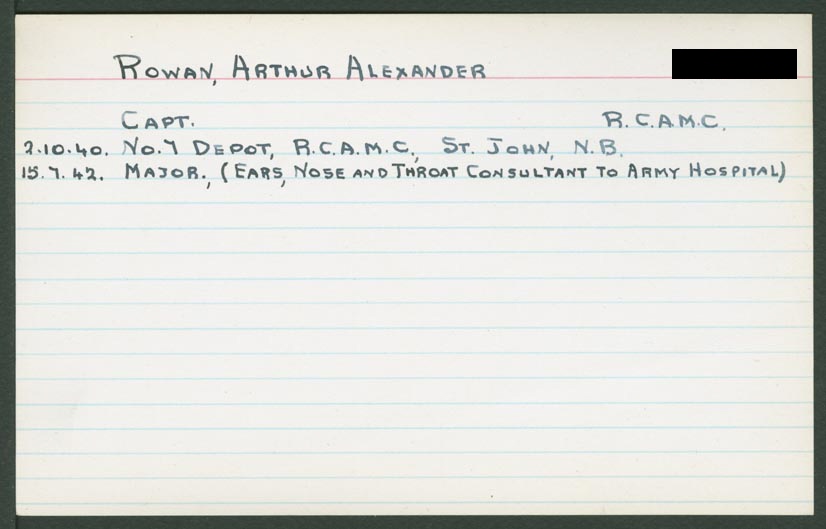 ROWAN, ARTHUR ALEXANDER
CAPT. R.C.A.M.C.
2.10.40. NO.7 DEPOT, R.C.A.M.C., ST. JOHN, N.B.
15.7.42. MAJOR., (EARS, NOSE AND THROAT CONSULTANT TO ARMY HOSPITAL)